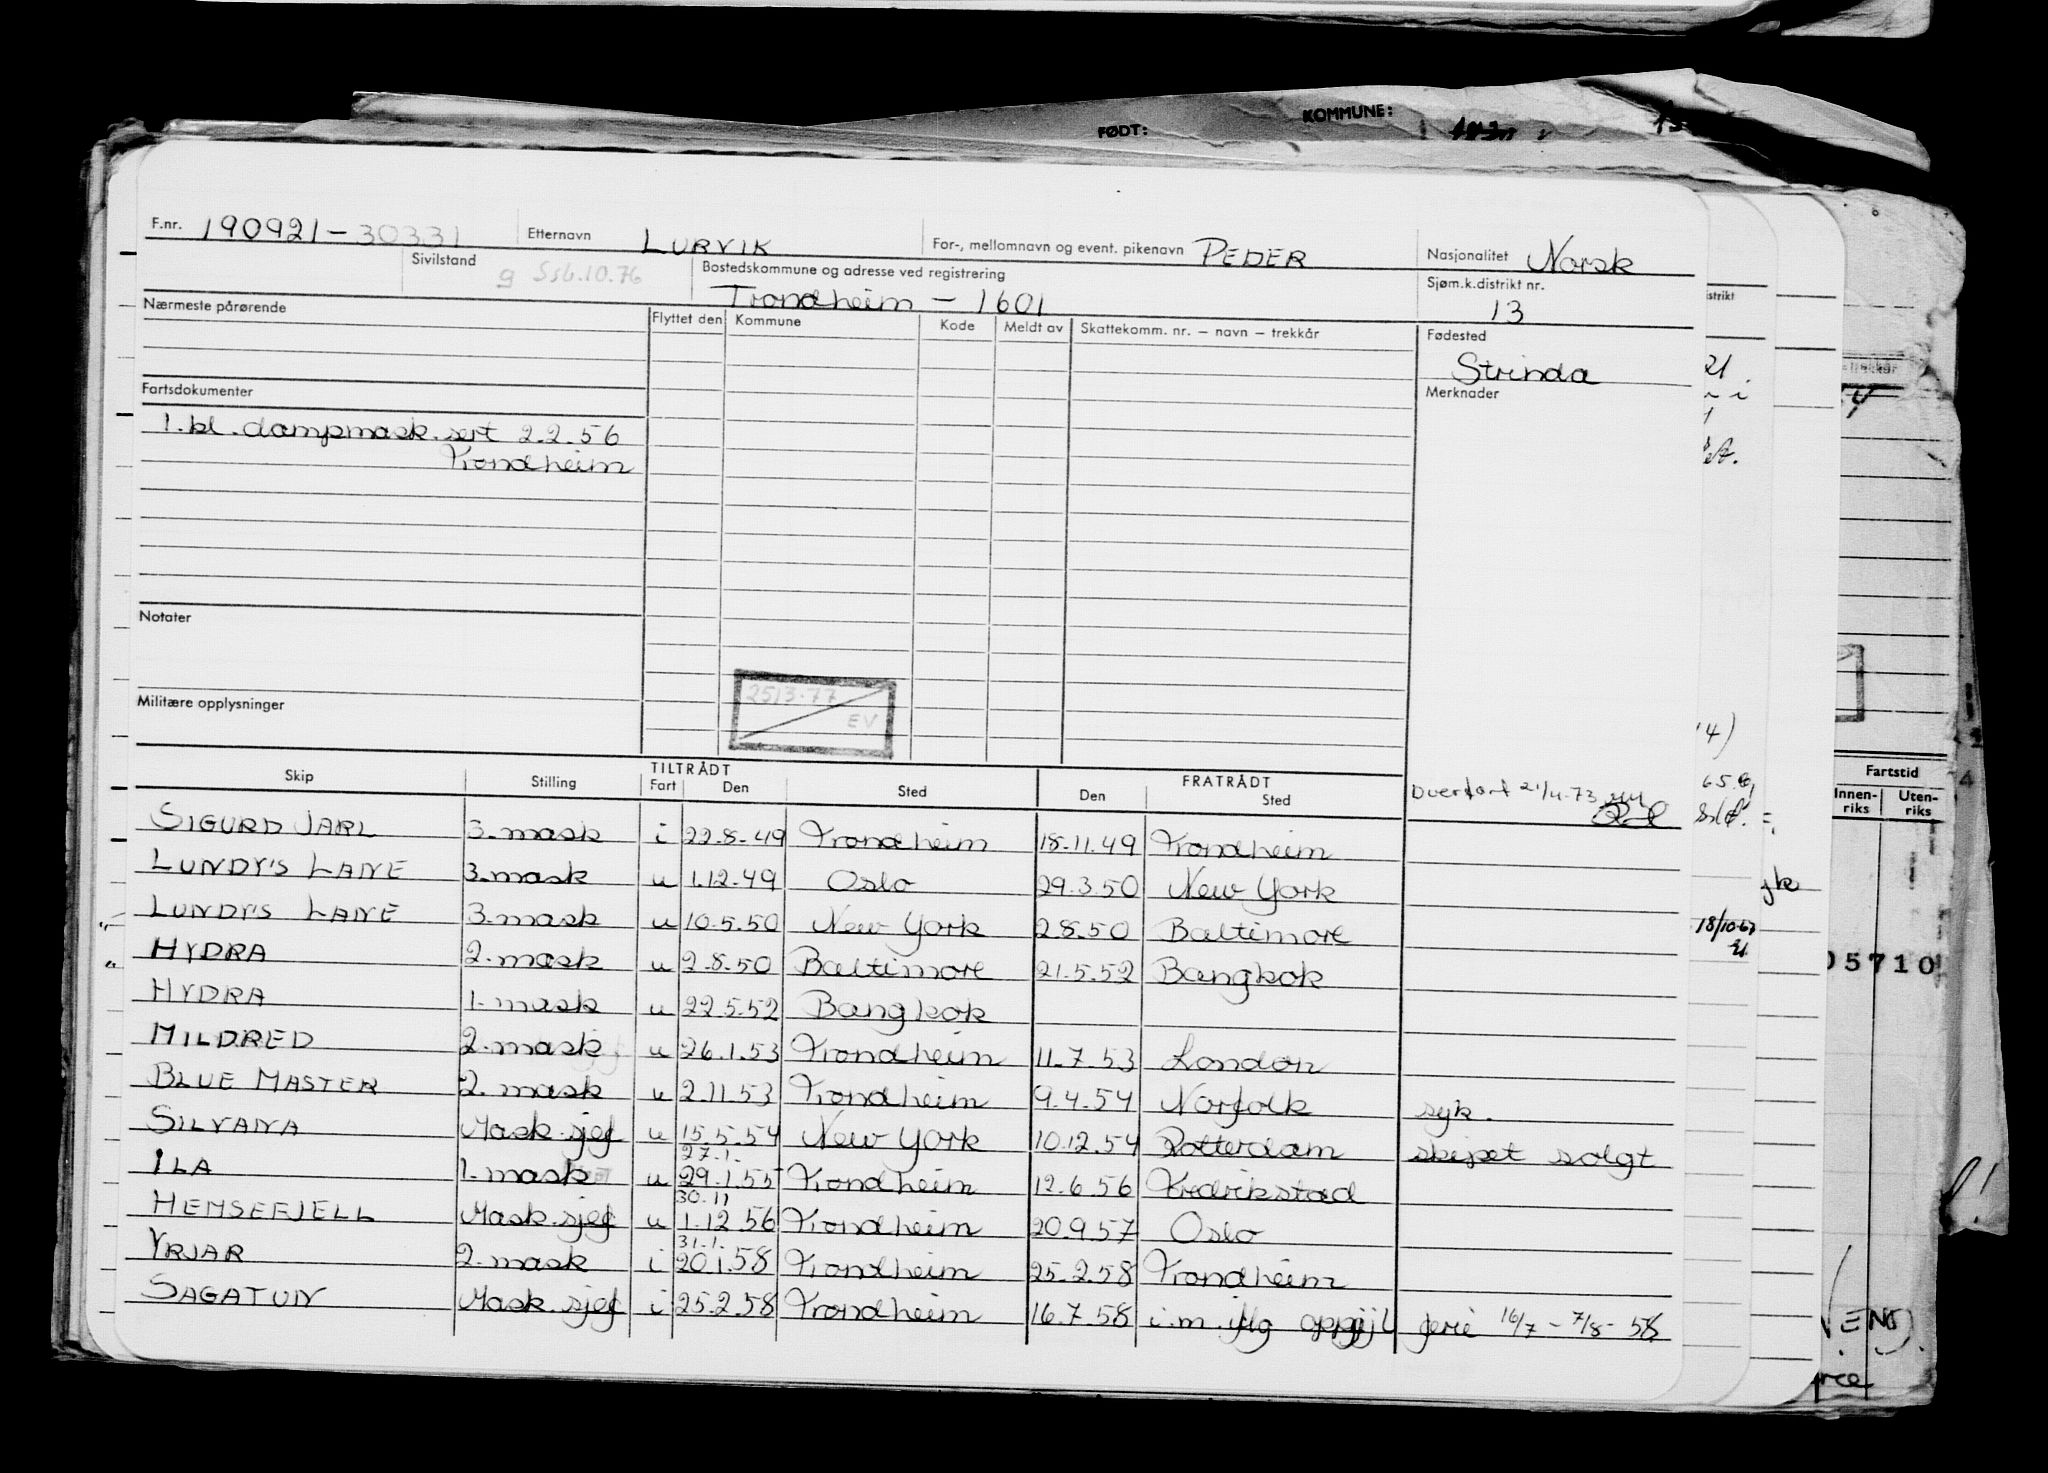 FØDT: KOMMUNE:
F.nr. 190921-30331 Etternavn LURVIK For-, mellomnavn og event. pikenavn PEDER Nasjonalitet Norsk
Sivilstand g Ssb.10.76 Bostedskommune og adresse ved registrering Trondheim - 1601 Sjøm.k.distrikt nr. 13
Nærmeste pårørende Flyttet den Kommune Kode Meldt av Skattekomm. nr. – navn – trekkår Fødested
Strinda
Fartsdokumenter Merknader
1.kl. dampmask.sert 2.2.56
Trondheim
Notater
2513.77
EV
Militære opplysninger
TILTRÅDT FRATRÅDT
Skip Stilling Fart Den Sted Den Sted Overført 21/4-73
SIGURD JARL 3.mask i 22.8.49 Trondheim 18.11.49 Trondheim
LUNDY'S LANE 3.mask u 1.12.49 Oslo 29.3.50 New York
LUNDY'S LANE 3.mask u 10.5.50 New York 2.8.50 Baltimore
HYDRA 2.mask u 2.8.50 Baltimore 21.5.52 Bangkok
HYDRA 1.mask u 22.5.52 Bangkok
MILDRED 2.mask u 26.1.53 Trondheim 11.7.53 London
BLUE MASTER 2.mask u 2.11.53 Trondheim 9.4.54 Norfolk syk.
SILVANA Mask.sjef u 15.5.54 New York 10.12.54 Rotterdam skipet solgt
27.1.
ILA 1.mask u 29.1.55 Trondheim 12.6.56 Fredrikstad
30.11
HEMSEFJELL Mask.sjef u 1.12.56 Trondheim 20.9.57 Oslo
31.1.
YRJAR 2.mask i 20.1.58 Trondheim 25.2.58 Trondheim
SAGATUN Mask.sjef i 25.2.58 Trondheim 16.7.58 i.m. iflg oppgj ferie 16/7 - 7/8 - 58
Fartstid
Innen-riks Uten-riks
18/10-67
05710